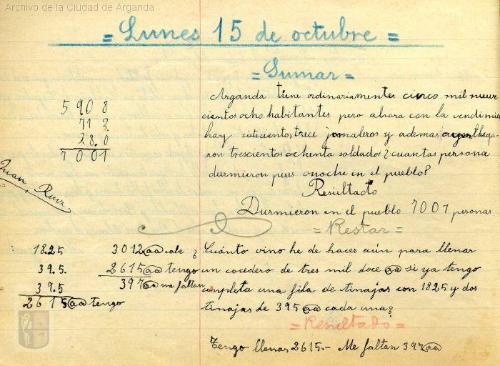 Archivo de la Ciudad de Arganda
= Lunes 15 de octubre =
= Sumar =
5908
713
380
7001
Juan Ruiz
Arganda tiene ordinariamente cinco mil nueve
cientos ocho habitantes pero ahora con la vendimia
hay setecientos trece jornaleros y ademas llega
ron trescientos ochenta soldados ¿cuantas persona
durmieron pues anoche en el pueblo?
Resultado
Durmieron en el pueblo 7001 personas
= Restar =
1825
395
395
2615 @@ tengo
3012 @@ cale
2615 @@ tengo
397 @@ me faltan
¿Cuánto vino he de hacer aún para llenar
un cocedero de tres mil doce @@ si ya tengo
completa una fila de tinajas con 1825 y dos
tinajas de 395 @@ cada una?
= Resultado =
Tengo llenas 2615 - Me faltan 397 @@